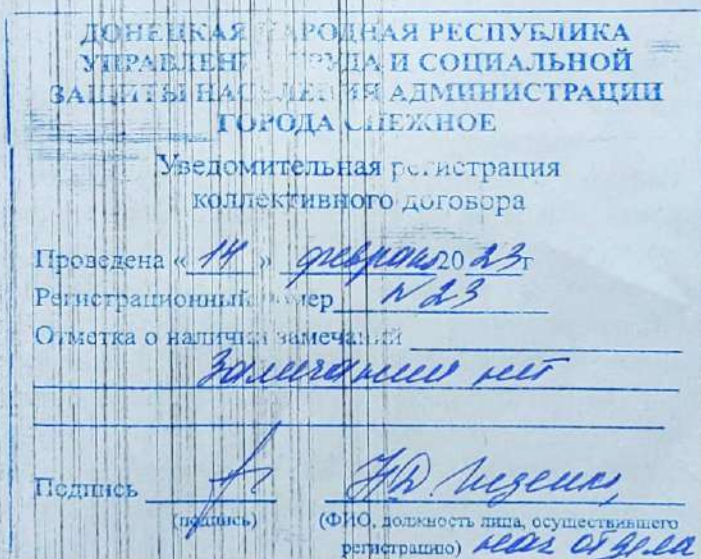 ДОНЕЦКАЯ НАРОДНАЯ РЕСПУБЛИКА
УПРАВЛЕНИЕ ТРУДА И СОЦИАЛЬНОЙ
ЗАЩИТЫ НАСЕЛЕНИЯ АДМИНИСТРАЦИИ
ГОРОДА СНЕЖНОЕ
Уведомительная регистрация
коллективного договора
Проведена « 14 » февраля 20 23 г
Регистрационный номер N 23
Отметка о наличии замечаний
Замечаний нет
Подпись
(подпись) (ФИО, должность лица, осуществившего
регистрацию) нач отдела